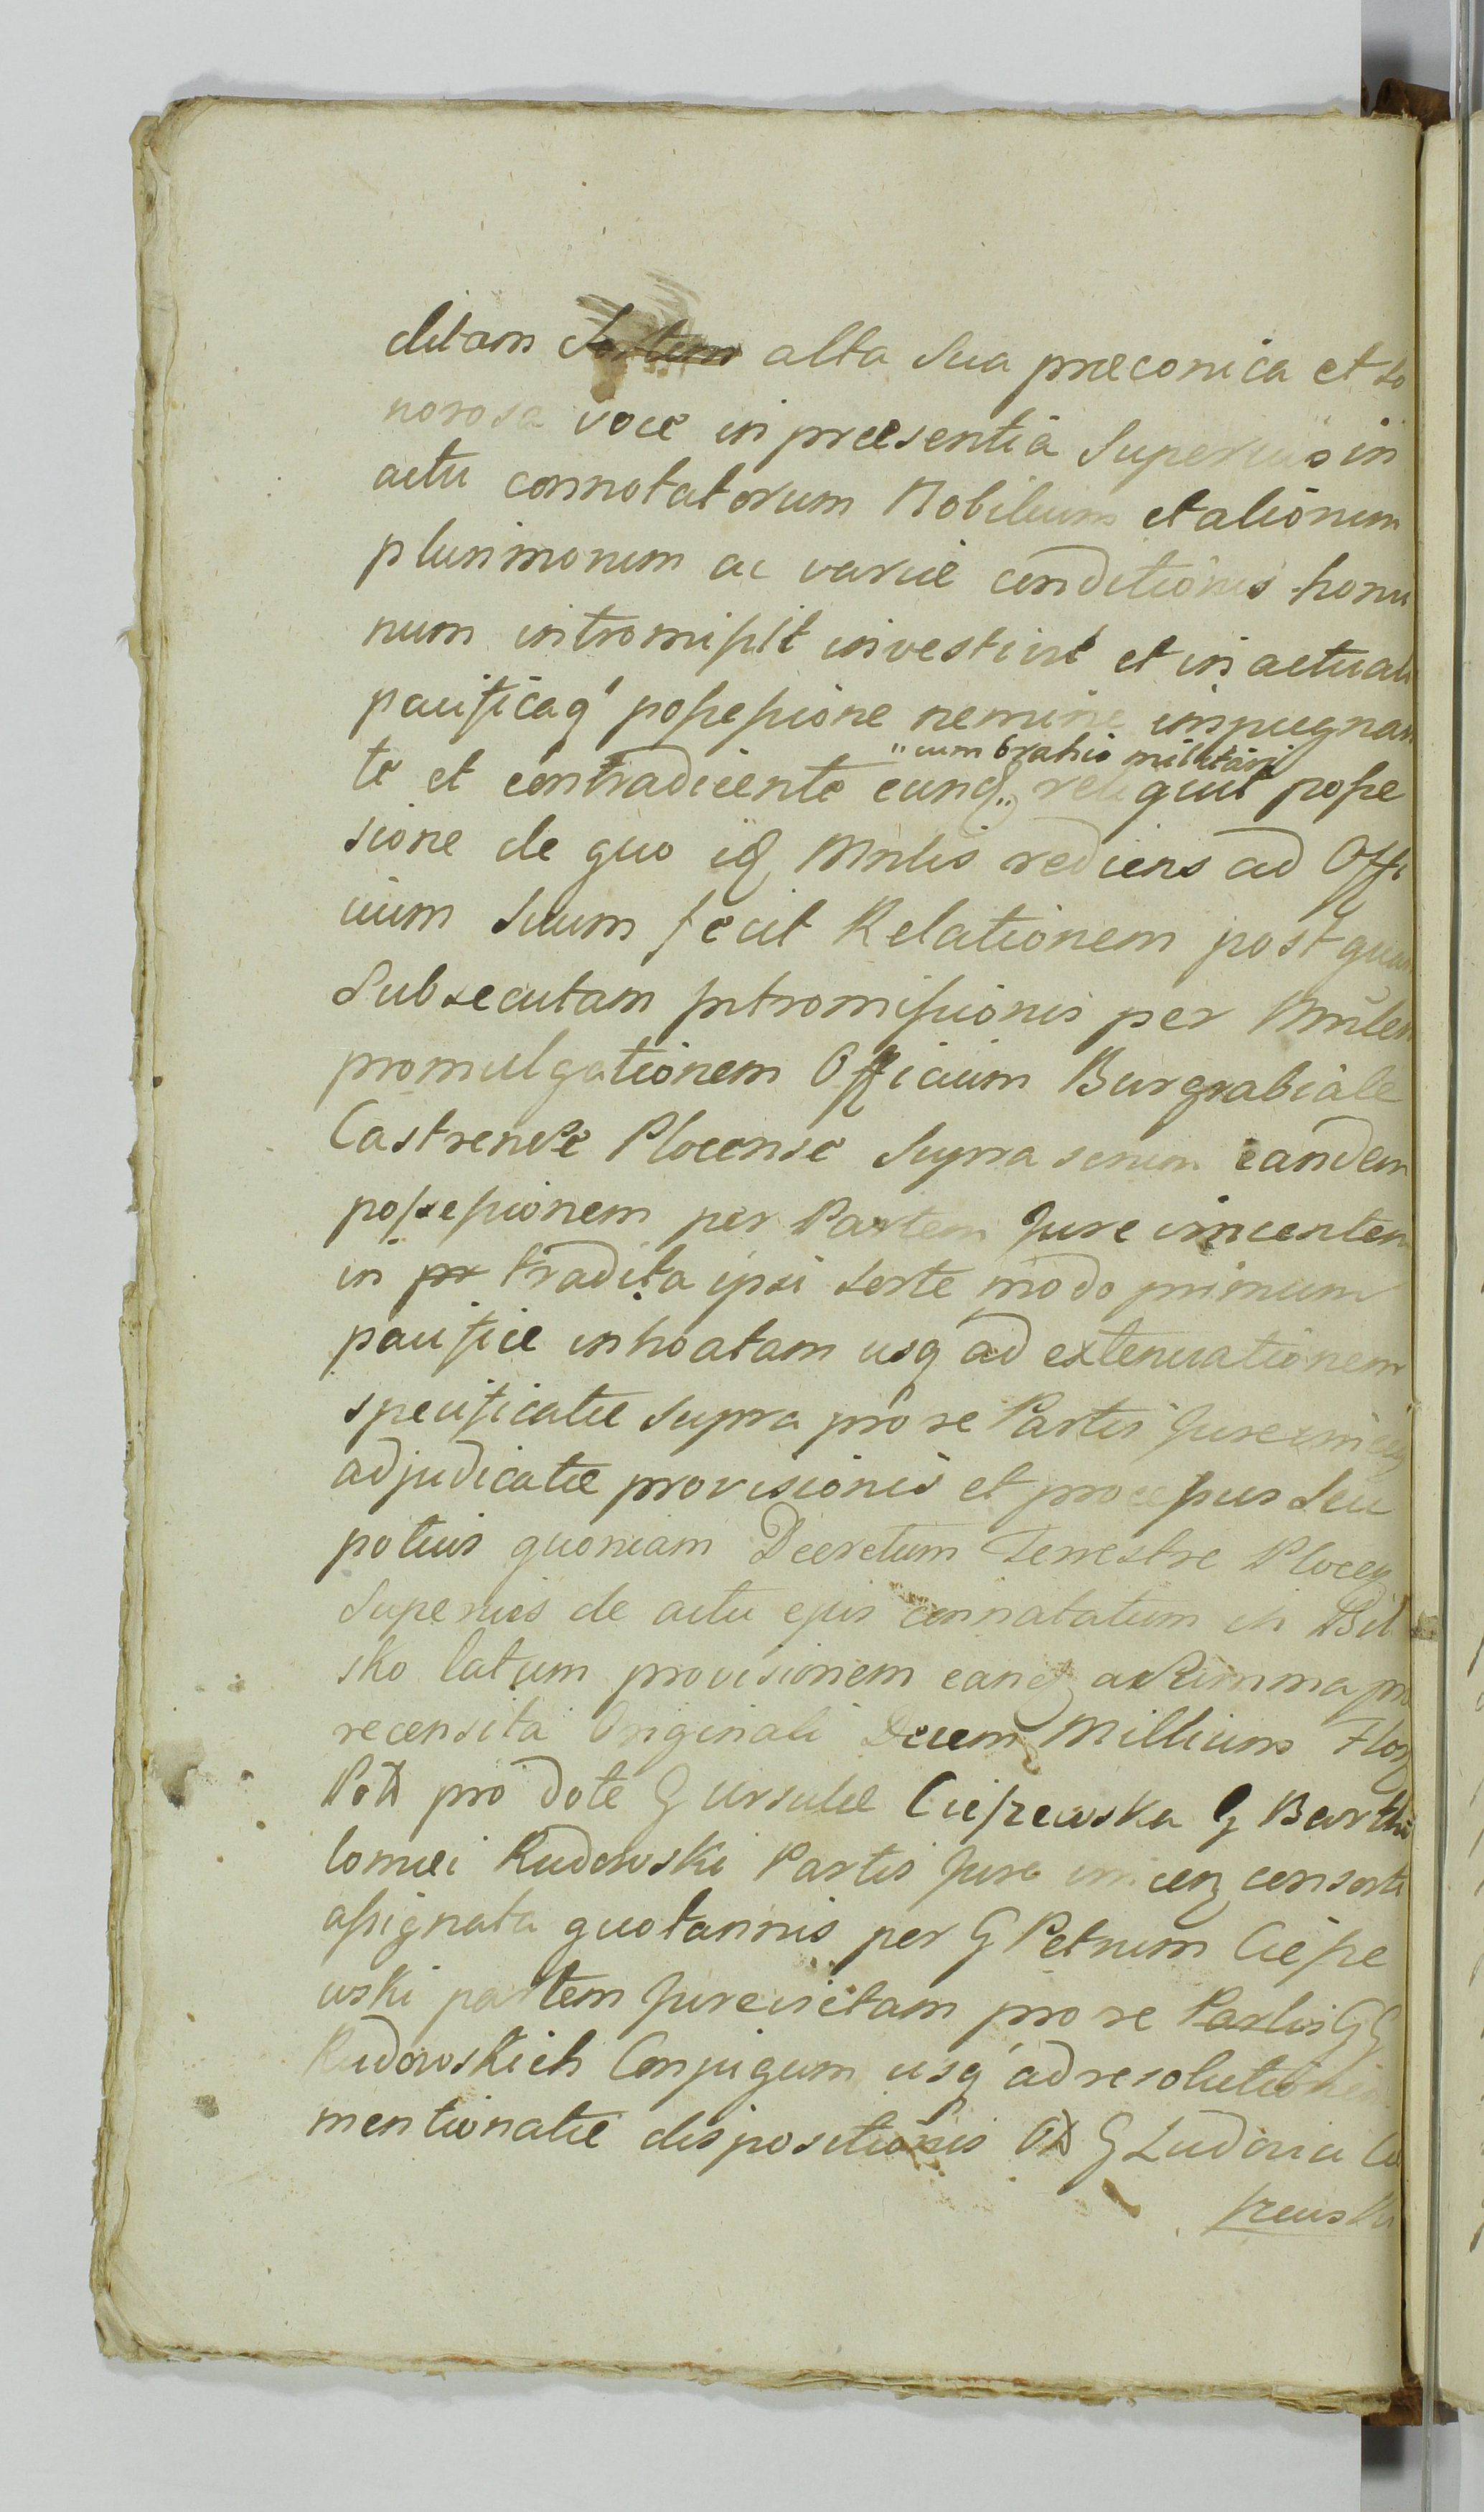 ditam Sortem alta Sua præconica et so
norosa voce in præsentia Superius in
actu connotatorum Nobilium et aliorum
plurimorum ac variæ conditionis homi
num intromissit investivit et in actuali
pacificaq' possessione nemine impugnan
te et contradicente eunq „ reliquit posse
„cum brahio militari
sione de quo idq Mnlis rediens ad Offi
cium Suum fecit Relationem post quam
Subsecutam Intromissionis per Mnlem
promulgationem Officium Burgrabiale
Castrense Plocense Supra serium eandem
possessionem per Partem Jure vincentem
in tradita ipsi sorte modo primum
pacifice inhoatam usq' ad extenuationem
specificatæ supra pro re Partis Jurevincen
adjudicatæ provisionis et processus Seu
potius quoniam Decretum Terrestre Plocen
Superius de actu ejus connatatum in Bil
sko latum provisionem eanq a Summa præ
recensita Originali Decem Millium Flor
Pol pro dote G Ursulæ Cieszewska G Bartho
lomei Rudowski Partis Jure vincen consorti
assignata quotannis per G Petrum Ciesze
wski partem Jurevictam pro re Partis GG
Rudowskich Conjugum usq' ad resolutionem
mentionatæ dispositionis Ol G Ludovici Cie
szewski